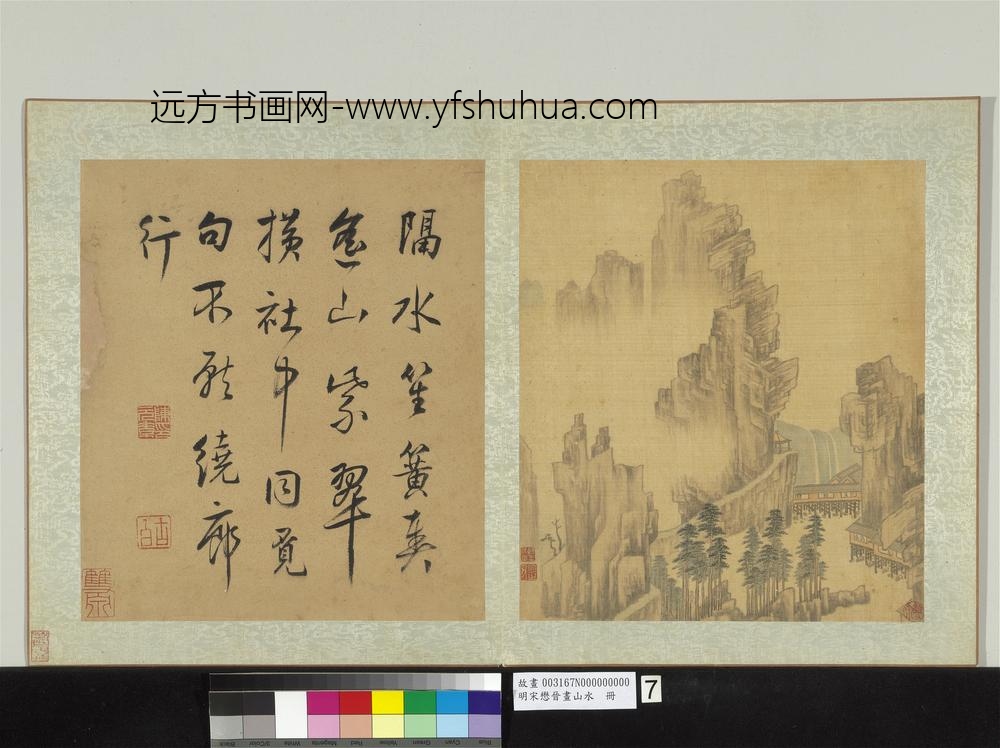 远方书画网-www.yfshuhua.com
隔水笙簧奏
山紫翠
橫社中同覓
句不厭繞廊
行
故畫 003167N000000000
明宋懋晉畫山水 冊
7
Blue Cyan Green Yellow Red Magenta White 3/Color Black